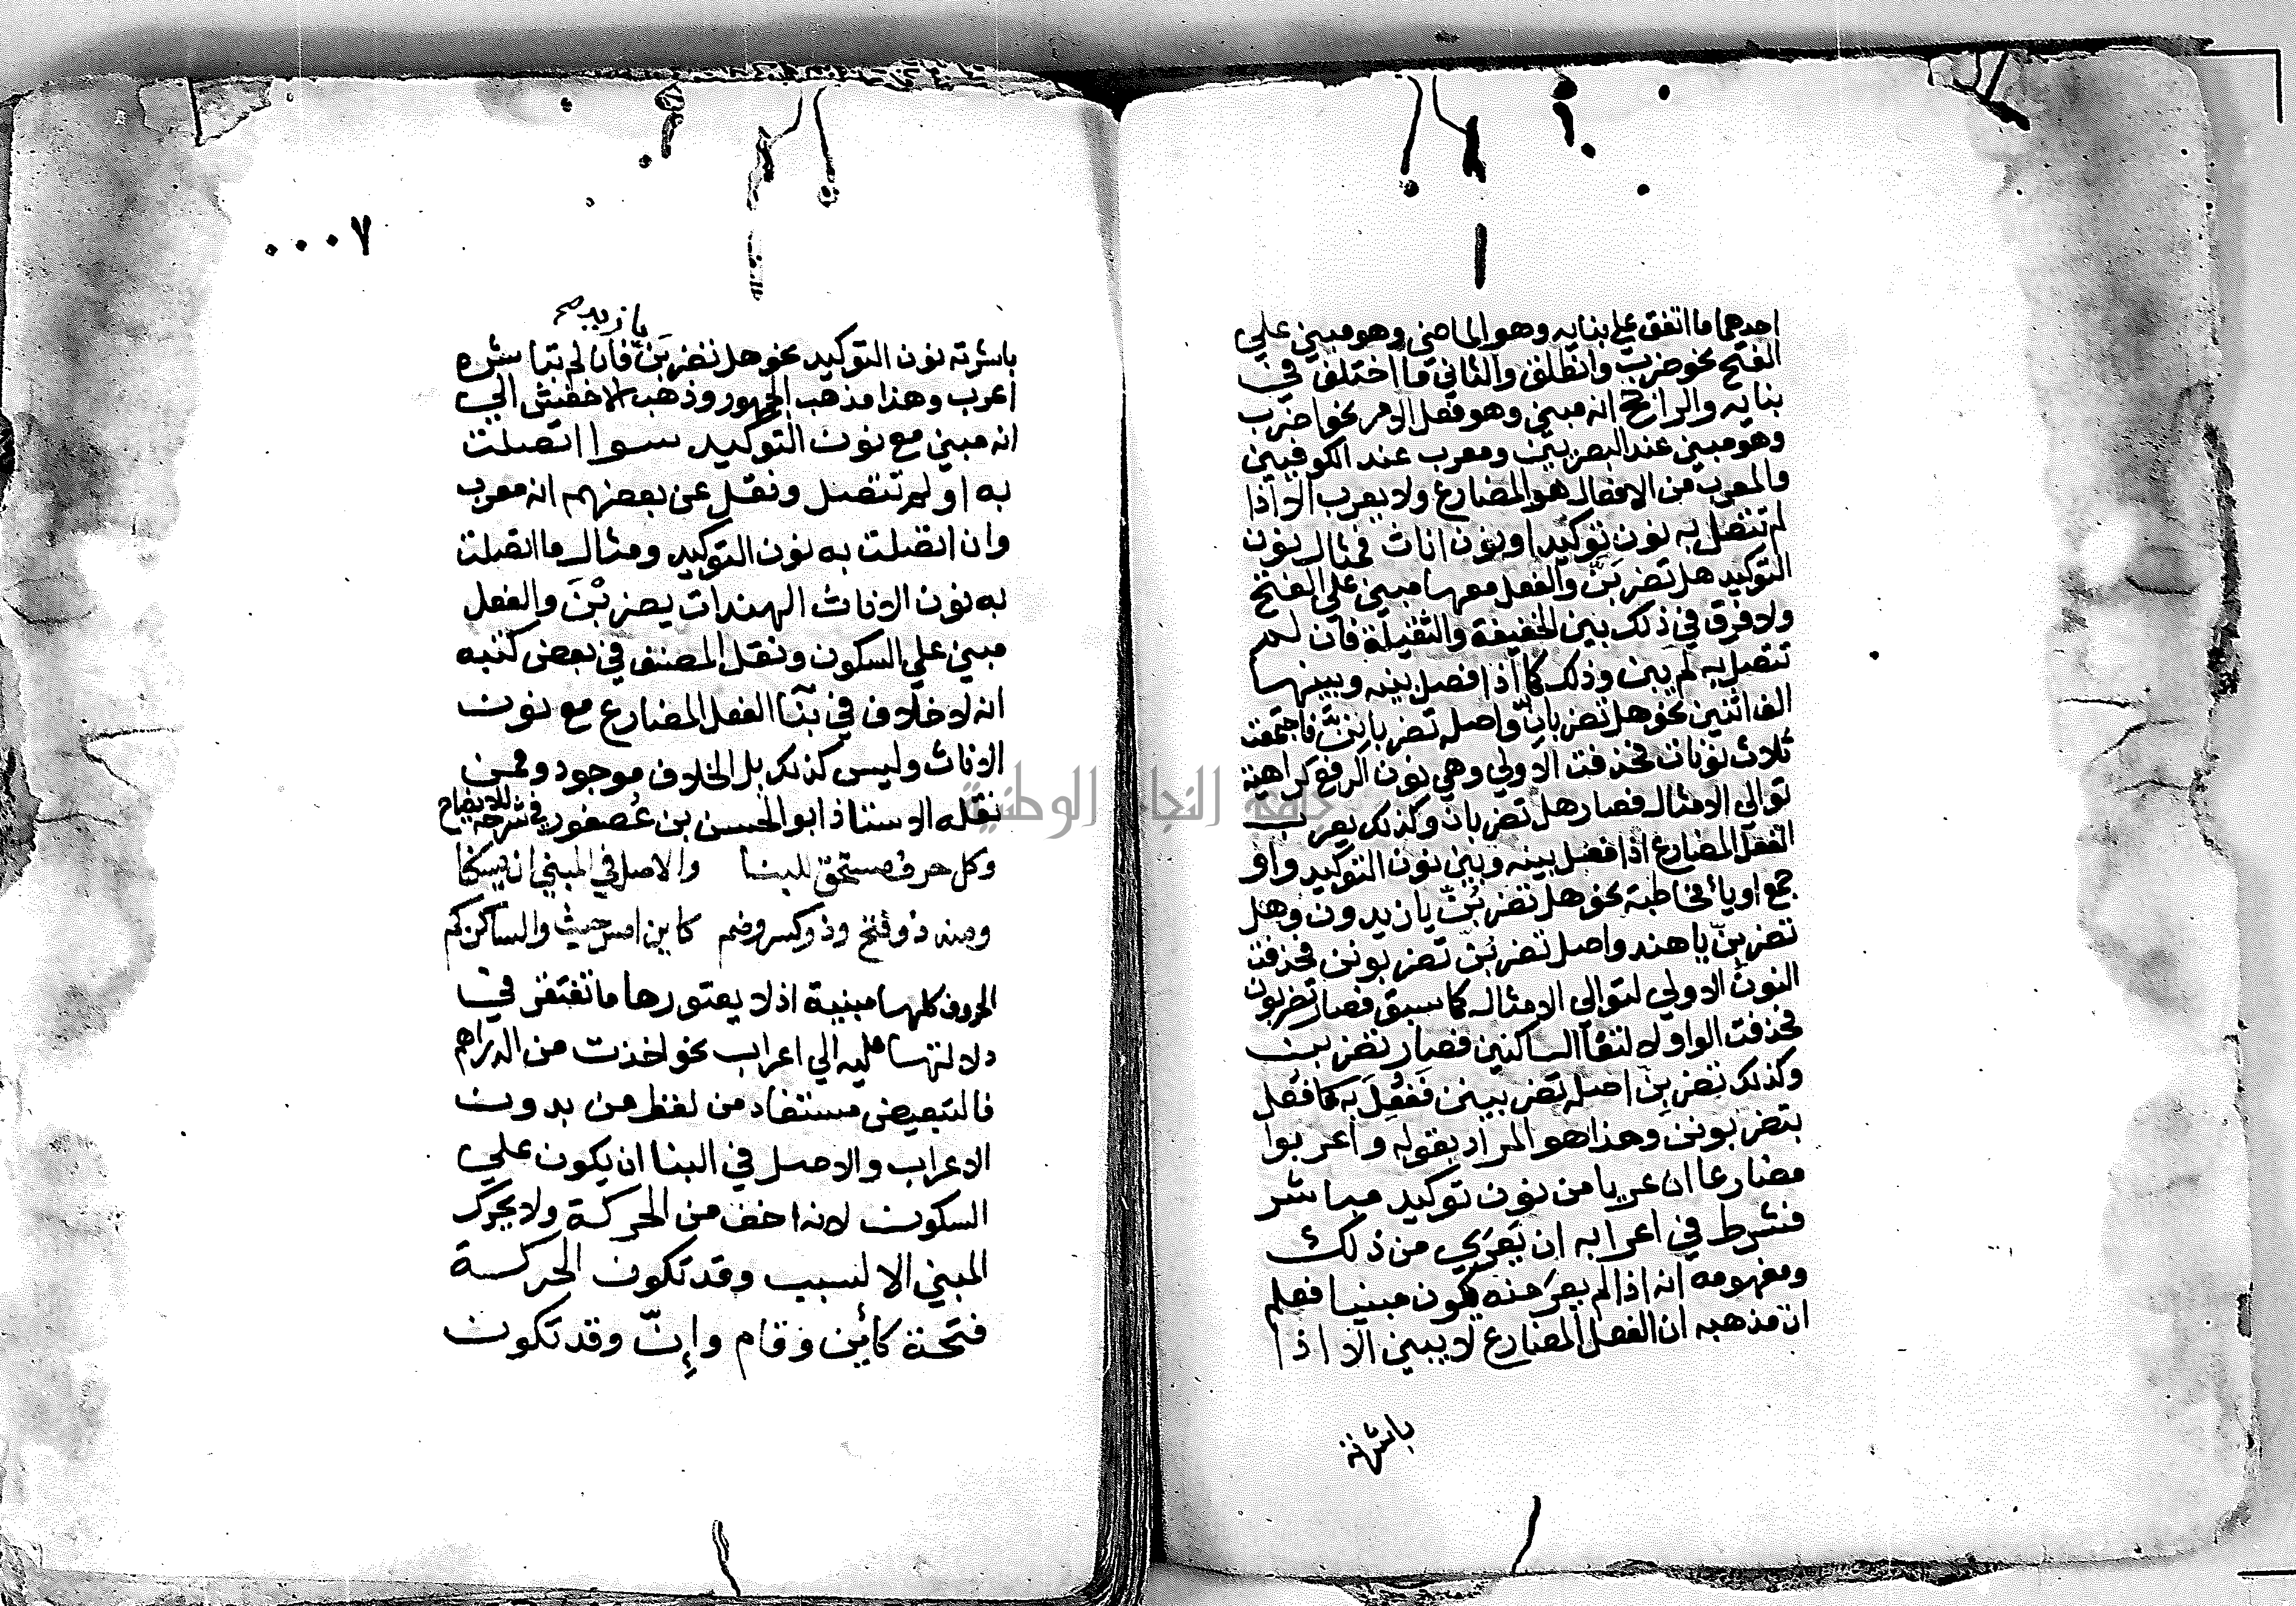 احدهما ما اتفق علي بنايه وهو الماضي وهو مبني علي
الفتح نحو ضرب وانطلق والثاني ما اختلف في
بنايه والراجح انه مبني وهو فعل الامر نحو اضرب
وهو مبني عند البصريين ومعرب عند الكوفيين
والمعرب من الافعال هو المضارع ولا يعرب الا اذا
لم تتصل به نون توكيد او نون اناث فمثال نون
التوكيد هل تضربَنّ والفعل معها مبني علي الفتح
ولا فرق في ذلك بين الخفيفة والثقيلة فان لم
تتصل به لم يبن وذلك كما اذا فصل بينه وبينها
الف اثنين نحو هل تضربانّ واصله تضرباننّ فاجتمعت
ثلاث نونات فحذفت الاولي وهي نون الرفع كراهة
توالي الامثال فصار هل تضربان وكذلك يعرب
الفعل المضارع اذا فصل بينه وبين نون التوكيد واو
جمع او يا مخاطبة نحو هل تضربُنّ يا زيدون وهل
تضربِنّ يا هند واصل تضربُنّ تضربونن فحذفت
النون الاولي لتوالي الامثال كما سبق فصار تضربون
فحذفت الواو لالتقا الساكنين فصار تضربن
وكذلك تضربِنّ اصله تضربينن فَفُعِلَ به كما فعل
بتضربونن وهذا هو المراد بقوله واعربوا
مضارعا ان عريا من نون توكيد مباشر
فشرط في اعرابه ان يَعرَي من ذلك
ومفهومه انه اذا لم يعرَ منه يكون مبنيا فعلم
ان مذهبه ان الفعل المضارع لا يبني الا اذا
باشرته
٠٠٠٧
يا زيد صح
باشرته نون التوكيد نحو هل تضربَنّ فان لم تباشره
اعرب وهذا مذهب الجمهور وذهب الاخفش الي
انه مبني مع نون التوكيد سوا اتصلت
به او لم تتصل ونقل عن بعضهم انه معرب
وان اتصلت به نون التوكيد ومثال ما اتصلت
به نون الاناث الهندات يضربْنَ والفعل
مبني علي السكون ونقل المصنف في بعض كتبه
انه لا خلاف في بنآ الفعل المضارع مع نون
الاناث وليس كذلك بل الخلاف موجود وممن
نقله الاستاذ ابو الحسن بن عُصفور في شرحه للايضاح
وكل حرف مستحق للبنا والاصل في المبني ان يسكنا
ومنه ذو فتح وذو كسر وضم كاين امس حيث والساكن كم
الحروف كلها مبنية اذ لا يعتورها ما تفتقر في
دلالتها عليه الي اعراب نحو اخذت من الدراهم
فالتبعيض مستفاد من لفظ من بدون
الاعراب والاصل في البنا ان يكون علي
السكون لانه اخف من الحركة ولا يحرك
المبني الا لسبب وقد تكون الحركة
فتحة كأين وقام وإنّ وقد تكون
جامعة النجاح الوطنية